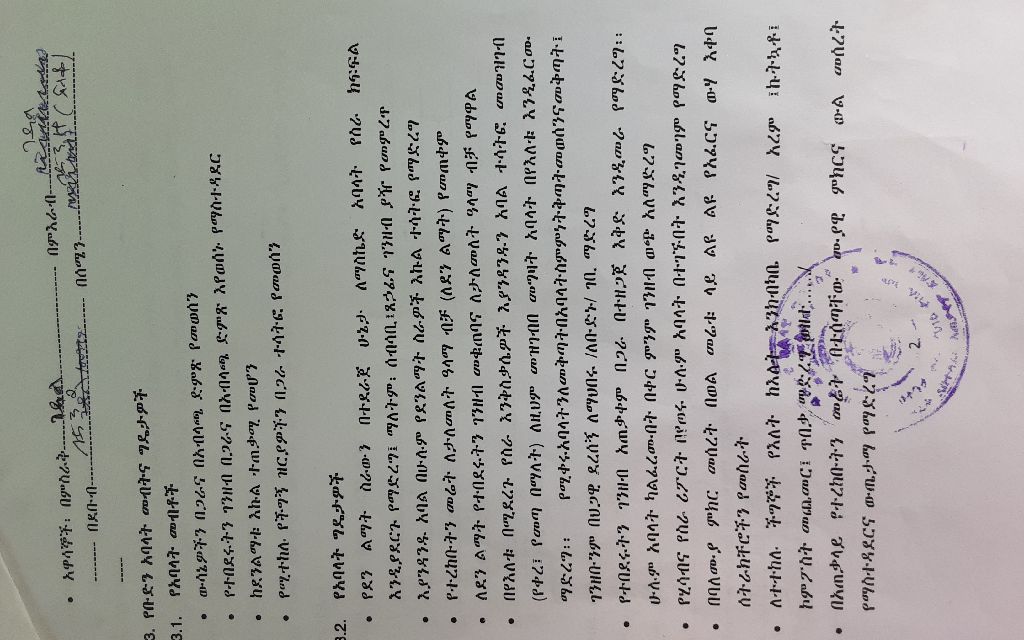 • አዋሳኞች፡ በምስራት------------------------- በምእራብ-------------------
---------- በደቡብ------------------------- በሰሜን-------------------
----
3. የቡድን አባላት መብትና ግዴታዎች
3.1. የአባላት መብቶች
• ውሳኔዎችን በጋራና በአብላጫ ድምጽ የመወሰን
• የተበደሩትን ገንዘብ በጋራና በአብላጫ ድምጽ እየወሰኑ የማስተዳደር
• ከደንልማቱ እኩል ተጠቃሚ የመሆን
• የሚተከሉ የችግኝ ዝርያዎችን በጋራ ተሳትፎ የመወሰን
3.2. የአባላት ግዴታዎች
• የደን ልማት ስራውን በተደራጀ ሁኔታ ለማስኬድ አባላት የስራ ክፍፍል
እንዲያደርጉ የማድረግ፤ ማለትም፡ ሰብሳቢ፤ጸኃፊና ገንዘብ ያዥ የመምረጥ
• እያንዳንዱ አባል በሁሉም የደንልማት ስራዎች እኩል ተሳትፎ የማድረግ
• የተረከቡትን መሬት ለታለመለት ዓላማ ብቻ (ለደን ልማት) የመጠቀም
• ለደን ልማት የተበደሩትን ገንዘብ መቁጠብና ለታለመለት ዓላማ ብቻ የማዋል
• በየእለቱ በሚደረጉ የስራ እንቅስቃሴዎች እያንዳንዱን አባል ተሳትፎ መመዝገብ
(የቀረ፤ የመጣ በማለት) ለዚህም መዝገብበ መግዛት አባላት በየእለቱ እንዲፈርሙ
ማድረግ፡፡ የሚቀሩአባላትንለመቅጣትበአባላትስምምነትቅጣትመወሰንናመቅጣት፤
ገንዘቡንም በህጋዊ ደረሰኝ ለማህበሩ /ለቡድኑ/ ገቢ ማድረግ
• የተበደሩትን ገንዘብ አጠቃቀም በጋራ በተዘጋጀ እቅድ እንዲመራ የማድረግ፡፡
ሁሉም አባላት ካልፈረሙበት በቀር ምንም ገንዘብ ወጭ አለማድረግ
• የሂሳብና የስራ ሪፖርት በየወሩ ሁሉም አባላት በተገኙበት እንዲገመገም የማድረግ
• በባለሙያ ምክር መሰረት በወል መሬቱ ላይ ልዩ ልዩ የአፈርና ውሃ እቀባ
ስትራክቸሮችን የመስራት
• ለተተከሉ ችግኞች የእለት ከእለት እንክብካቤ የማድረግ/ አረም ፤ኩትኳቶ፤
ከምፖስት መጨመር፤ ጥበቃ ማድረግ
• በአጠቃላይ የተረከቡትን መሬት በተሰጣቸው ሙያዊ ምክርና ውል መሰረት
የማስተዳደርና ውጤታማ የማድረግ